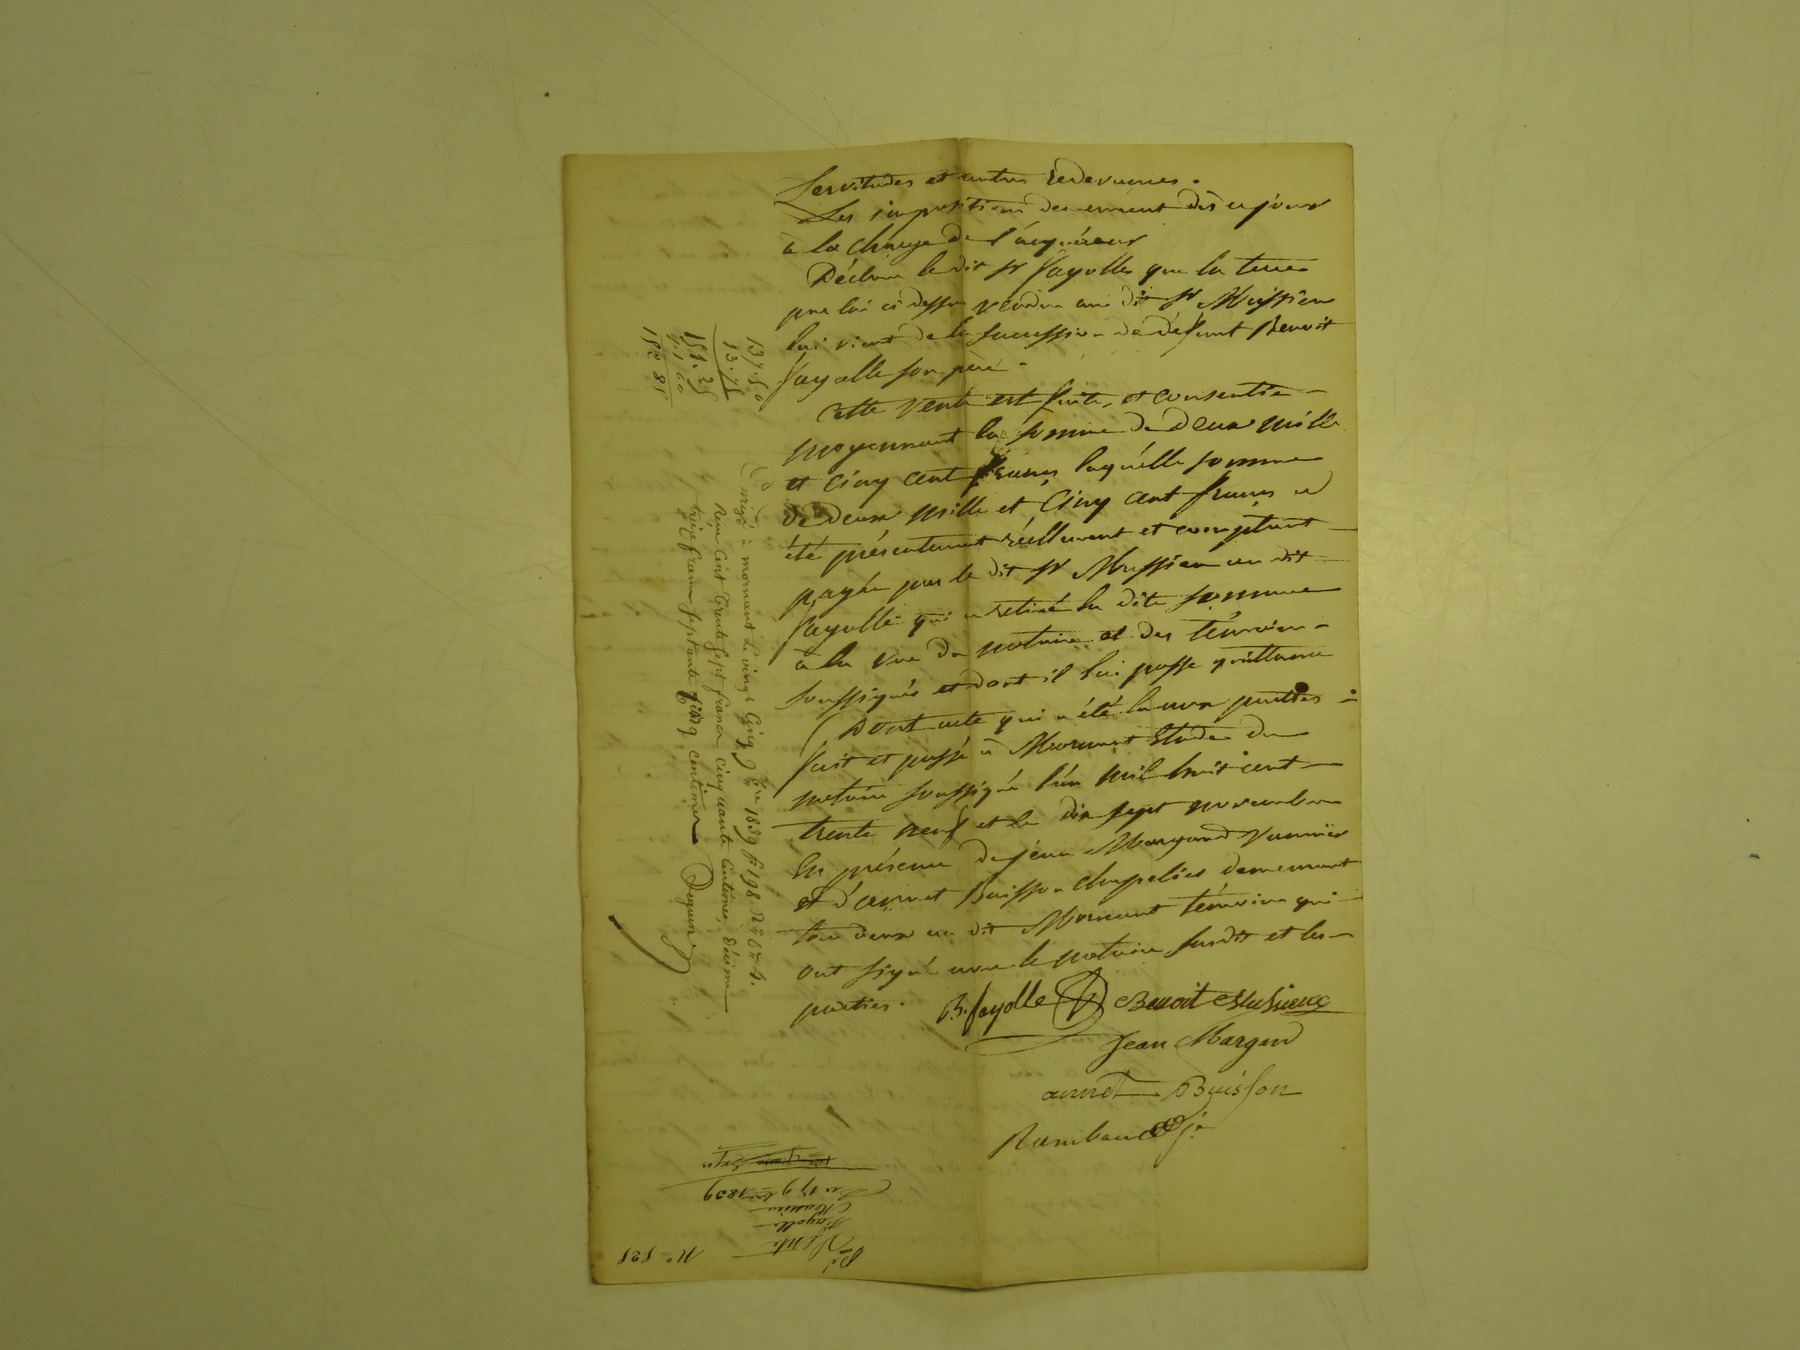 Servitudes et autres redevances.
Les impositions demeurent dès ce jour
à la charge de l'acquéreur
Déclare le dit sr fayolle que la terre
par lui ci dessus vendue au dit sr Mussieu
lui vient de la succession de défunt Benoit
fayolle son père -
Cette vente est faite, et consentie
moyennant la somme de deux mille
et cinq cent francs laquelle somme
de deux mille et cinq cent francs a
été présentement réellement et comptant
payée par le dit sr Mussieu au dit
fayolle qui a retiré la dite somme
à la vue du notaire et des témoins
soussignés et dont il lui passe quittance
Dont acte qui a été lu aux parties
fait et passé à Mornant Etude du
notaire soussigné l'an mil huit cent
trente neuf et le dix sept novembre
En présence de jean Margand
et d'annet Buisson chapelier demeurant
tous deux au dit Mornant témoins qui
ont signé avec le notaire susdit et les
parties. B. fayolle Benoit Musieux
Jean Margan
annet Buisson
Rambaud
137.50
13.75
151.25
1.60
152 85
Enregé à mornant le vingt Cinq 9bre 1839 fo 198
Reçu Cent trente sept francs cinquante Centimes, décime
treize francs septante cinq centimes
No 525
Vente
fayolle
Mussieu
Du 17 9bre 1839